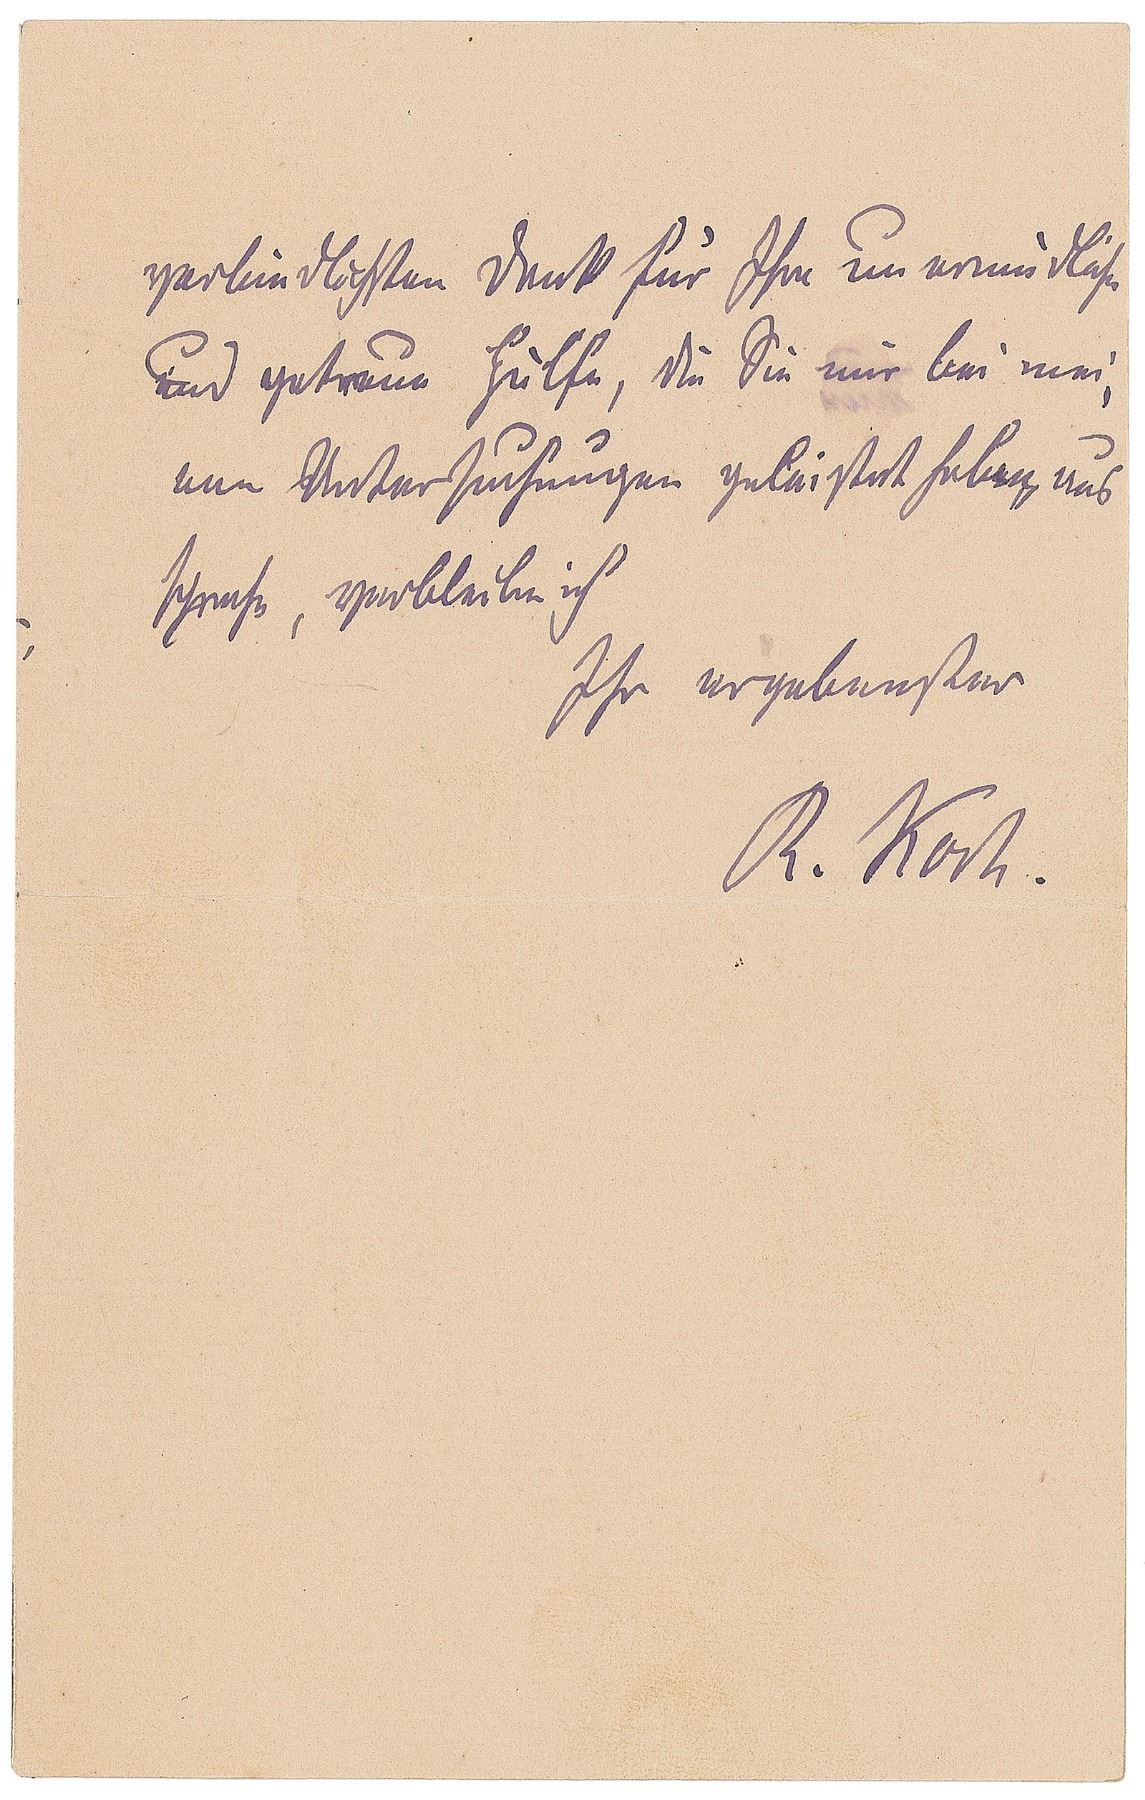 verbindlichsten Dank für Ihre unermüdliche
und getreue Hülfe, die Sie mir bei mei-
nen Untersuchungen geleistet haben, aus
spreche, verbleibe ich
Ihr ergebenster
R. Koch.